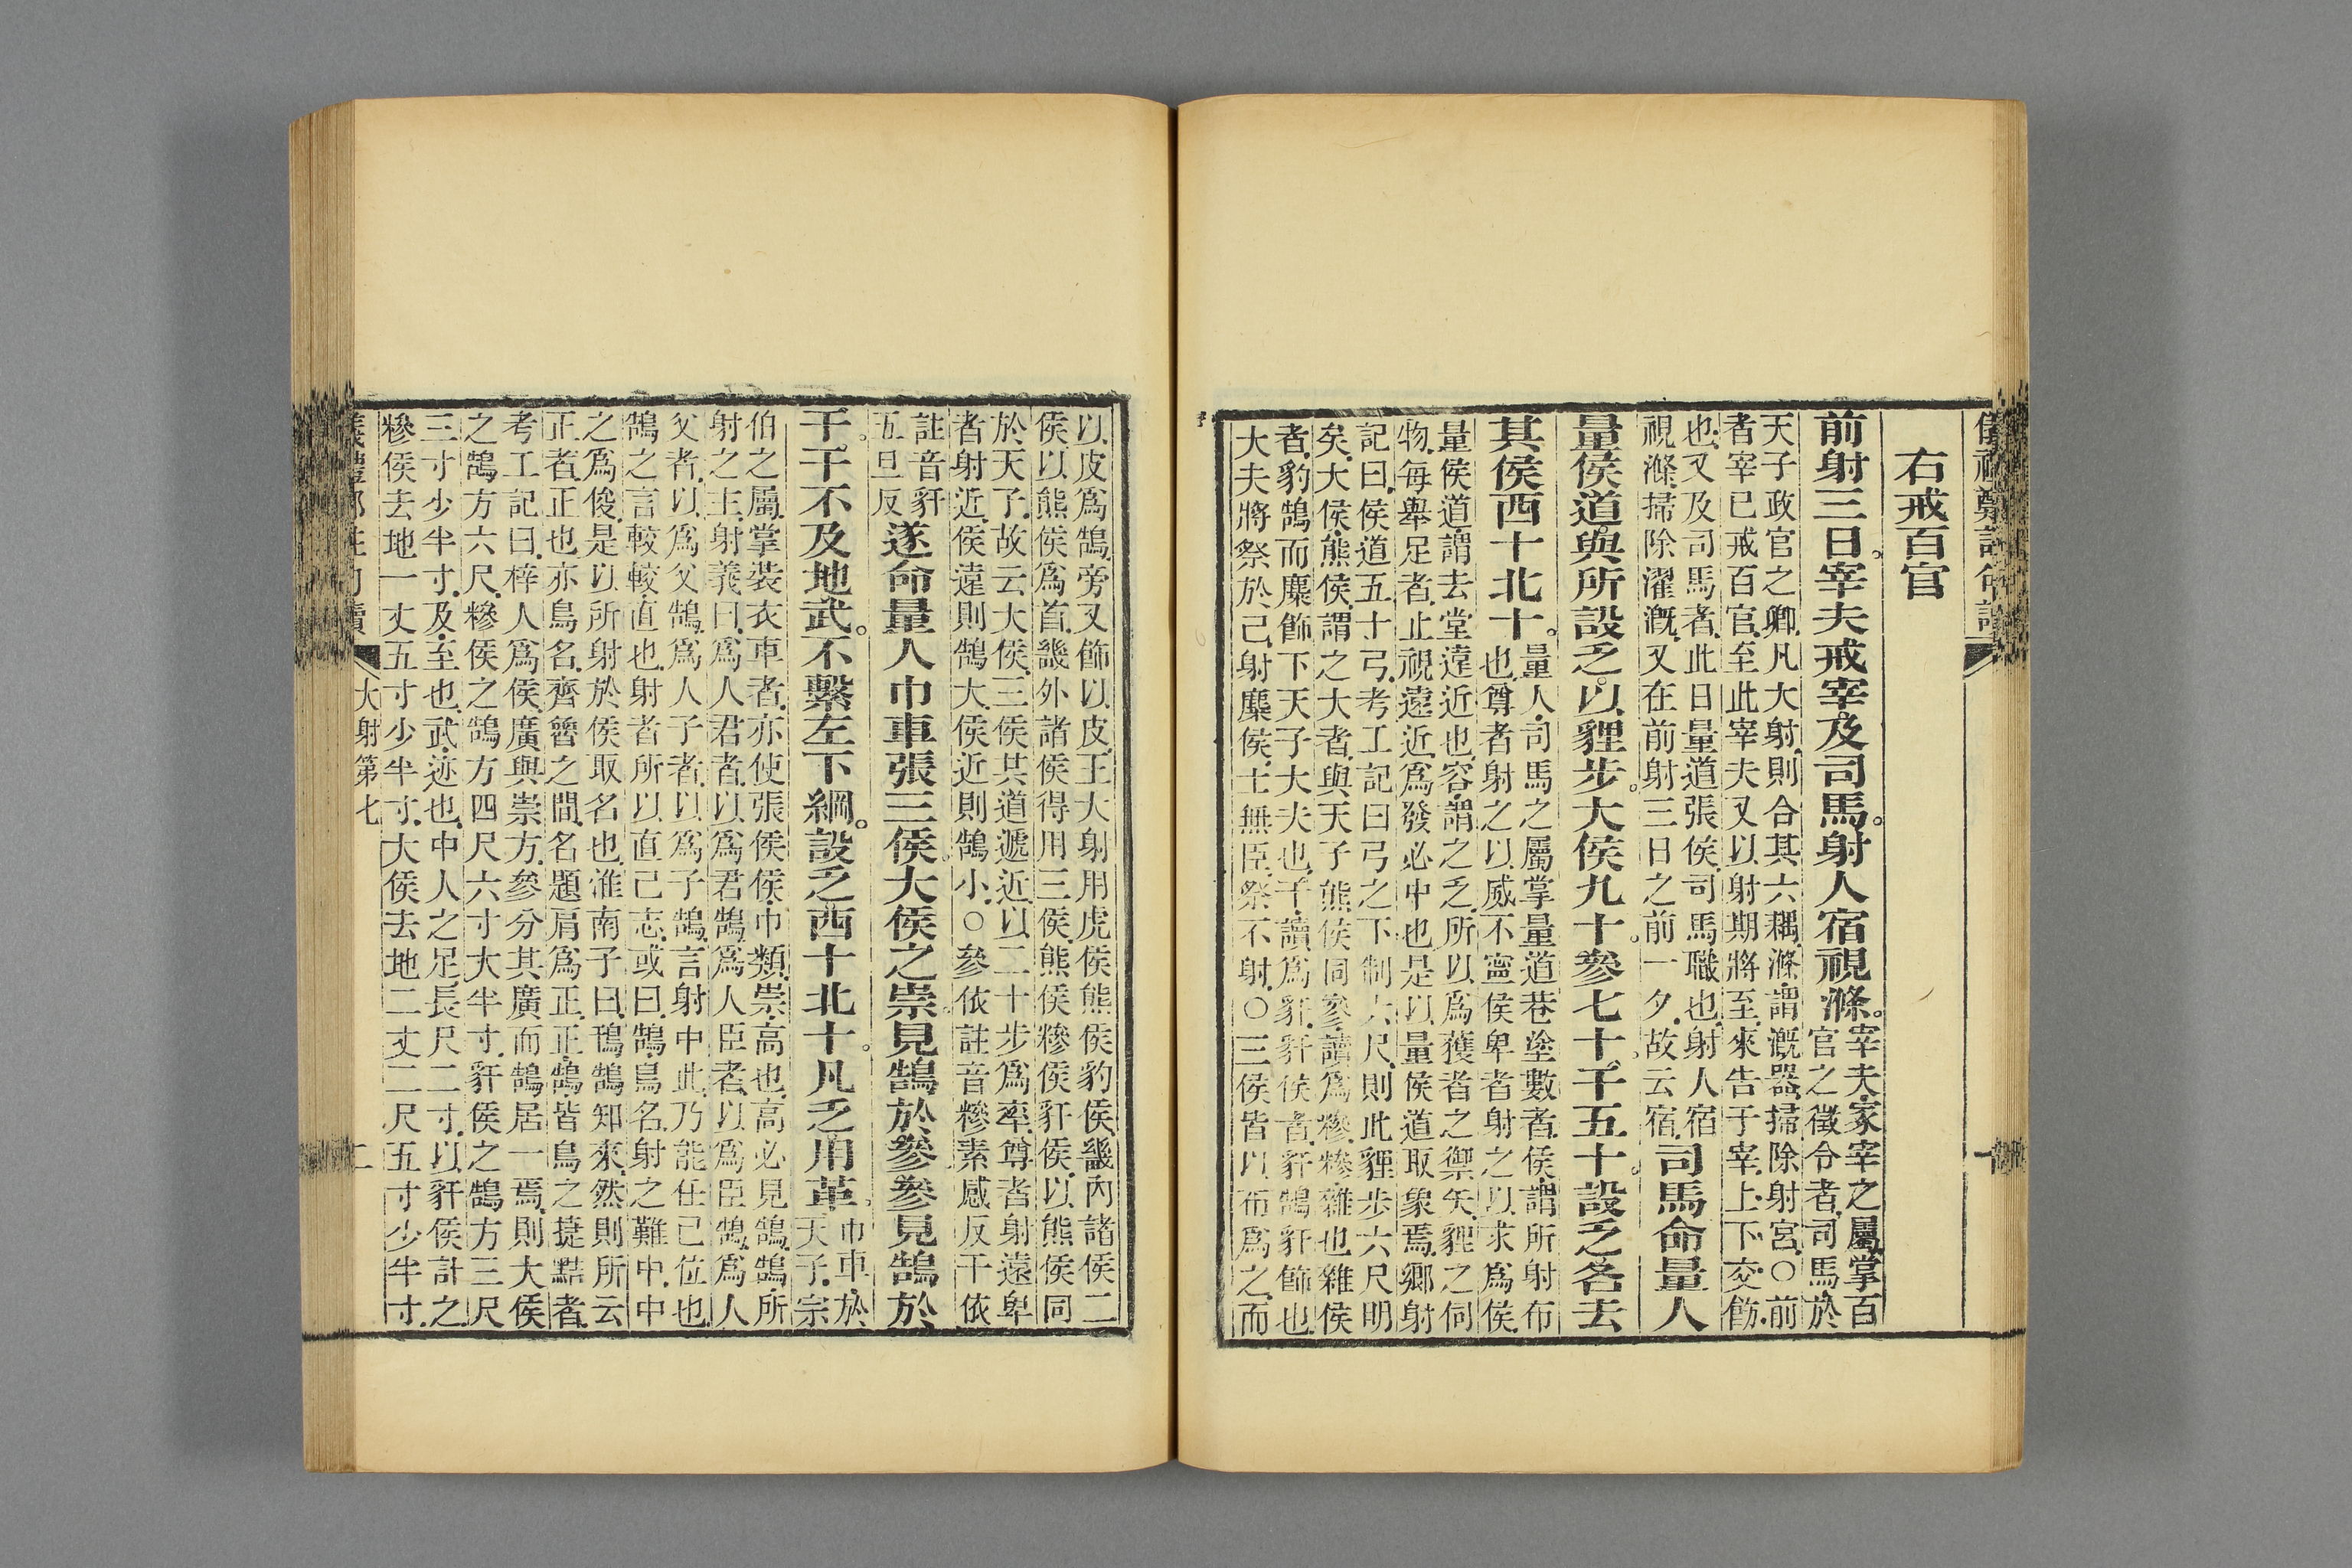 右戒百官
前射三日。宰夫戒宰及司馬。射人宿視滌。宰夫冢宰之屬掌百
官之徵令者司馬於
天子政官之卿凡大射則合其六耦滌謂溉器掃除射宮○前
者宰已戒百官至此宰夫又以射期將至來告于宰上下交飭
也又及司馬者此日量道張侯司馬職也射人宿
視滌掃除濯溉又在前射三日之前一夕故云宿司馬命量人
量侯道與所設乏以貍步。大侯九十。參七十。干五十。設乏各去
其侯西十北十。量人司馬之屬掌量道巷塗數者侯謂所射布
也尊者射之以威不寧侯卑者射之以求為侯
量侯道謂去堂遠近也容謂之乏所以為獲者之禦矢貍之伺
物每舉足者止視遠近為發必中也是以量侯道取象焉鄉射
記曰侯道五十弓考工記曰弓之下制六尺則此貍步六尺明
矣大侯熊侯謂之大者與天子熊侯同參讀為糝糝雜也雜侯
者豹鵠而麋飾下天子大夫也干讀為豻豻侯者豻鵠豻飾也
大夫將祭於己射麋侯士無臣祭不射○三侯皆以布為之而
以皮為鵠旁又飾以皮王大射用虎侯熊侯豹侯畿內諸侯二
侯以熊侯為首畿外諸侯得用三侯熊侯糝侯豻侯以熊侯同
於天子故云大侯三侯共道遞近以二十步為率尊者射遠卑
者射近侯遠則鵠大侯近則鵠小○參依註音糝素感反干依
註音豻
五旦反遂命量人巾車張三侯。大侯之崇。見鵠於參。參見鵠於
干。干不及地武。不繫左下綱。設乏西十北十。凡乏用革。巾車於
天子宗
伯之屬掌裝衣車者亦使張侯侯巾類崇高也高必見鵠鵠所
射之主射義曰為人君者以為君鵠為人臣者以為臣鵠為人
父者以為父鵠為人子者以為子鵠言射中此乃能任己位也
鵠之言較較直也射者所以直己志或曰鵠鳥名射之難中中
之為俊是以所射於侯取名也淮南子曰鳱鵠知來然則所云
正者正也亦鳥名齊魯之間名題肩為正正鵠皆鳥之捷黠者
考工記曰梓人為侯廣與崇方參分其廣而鵠居一焉則大侯
之鵠方六尺糝侯之鵠方四尺六寸大半寸豻侯之鵠方三尺
三寸少半寸及至也武迹也中人之足長尺二寸以豻侯計之
糝侯去地一丈五寸少半寸大侯去地二丈二尺五寸少半寸
大射第七